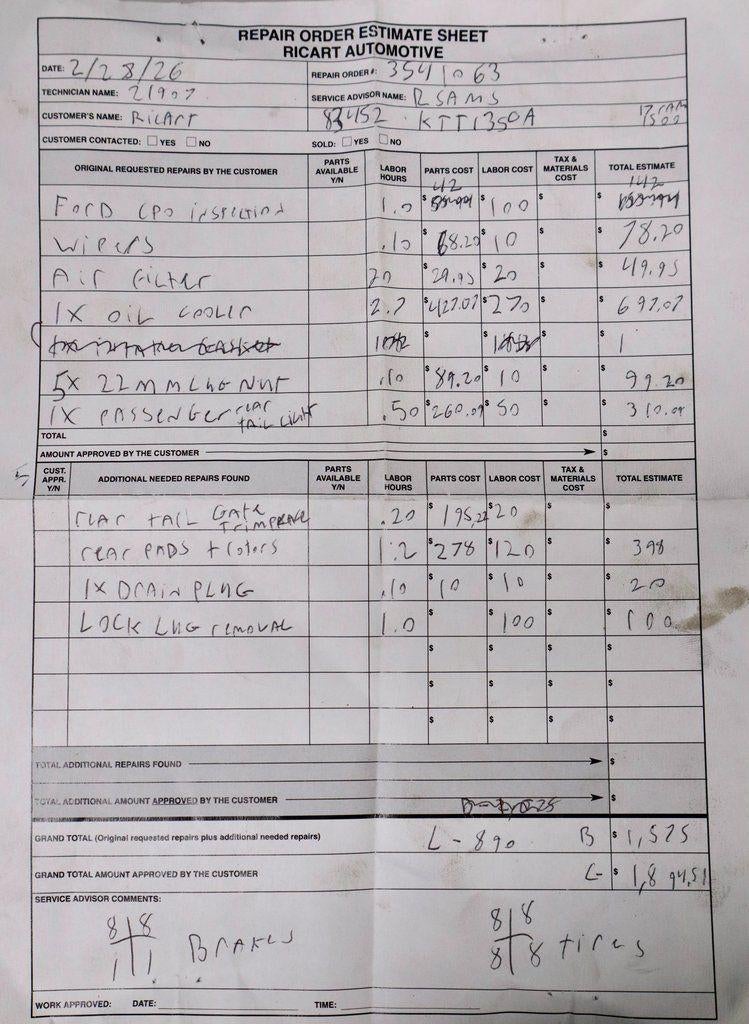 REPAIR ORDER ESTIMATE SHEET
RICART AUTOMOTIVE
DATE: 2/28/26 REPAIR ORDER #: 3541063
TECHNICIAN NAME: 21907 SERVICE ADVISOR NAME: RSAMS
CUSTOMER'S NAME: RICART 83452 KTT1350A 17 RAM 1500
CUSTOMER CONTACTED: YES NO SOLD: YES NO
ORIGINAL REQUESTED REPAIRS BY THE CUSTOMER PARTS AVAILABLE Y/N LABOR HOURS PARTS COST LABOR COST TAX & MATERIALS COST TOTAL ESTIMATE
FORD CPO INSPECTION 1.0 $ 42 $ 100 $ $ 142
WIPERS .10 $ 68.20 $ 10 $ $ 78.20
AIR FILTER 20 $ 29.95 $ 20 $ $ 49.95
1X OIL COOLER 2.7 $ 427.07 $ 270 $ $ 697.07
$ $ $ $
5X 22MM LUG NUT .10 $ 89.20 $ 10 $ $ 99.20
1X PASSENGER rear tail light .50 $ 260.09 $ 50 $ $ 310.09
TOTAL $
AMOUNT APPROVED BY THE CUSTOMER $
CUST. APPR. Y/N ADDITIONAL NEEDED REPAIRS FOUND PARTS AVAILABLE Y/N LABOR HOURS PARTS COST LABOR COST TAX & MATERIALS COST TOTAL ESTIMATE
rear tail Gate .20 $ 195.22 $ 20 $ $
rear PADS + rotors 1.2 $ 278 $ 120 $ $ 398
1X DRAIN PLUG .10 $ 10 $ 10 $ $ 20
LOCK LUG removal 1.0 $ $ 100 $ $ 100
$ $ $ $
$ $ $ $
$ $ $ $
TOTAL ADDITIONAL REPAIRS FOUND $
TOTAL ADDITIONAL AMOUNT APPROVED BY THE CUSTOMER $
GRAND TOTAL (Original requested repairs plus additional needed repairs) L - 890 B $ 1,525
GRAND TOTAL AMOUNT APPROVED BY THE CUSTOMER $ 1,894.51
SERVICE ADVISOR COMMENTS:
8 8 8 8
BRAKES tires
1 1 8 8
WORK APPROVED: DATE: TIME: